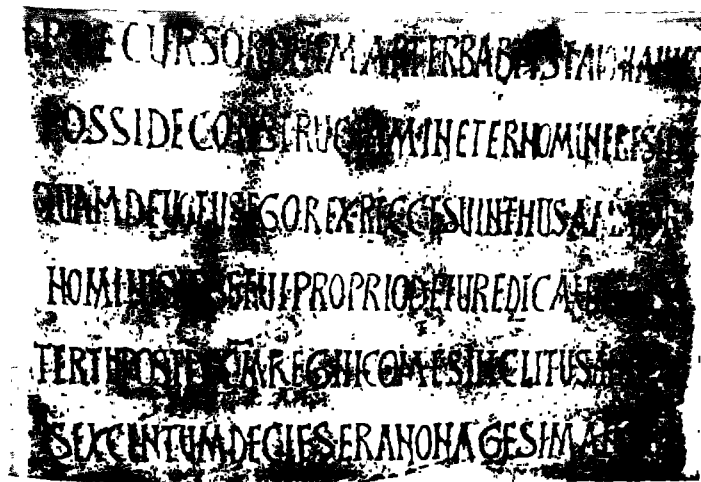 PRECURSOR DNI MARTER BABTISTA IOHANNES
POSSIDE CONSTRUCTAM IN ETERNO MUNERE SEDE
QUAM DEVOTUS EGO REX RECCESVINTHUS AMATOR
NOMINIS IPSE TUI PROPRIO DE IURE DICAVI
TERTII POST DECOM REGNI COMES INCLITUS
SEXCENTUM DECIES ERA NONAGESIMA